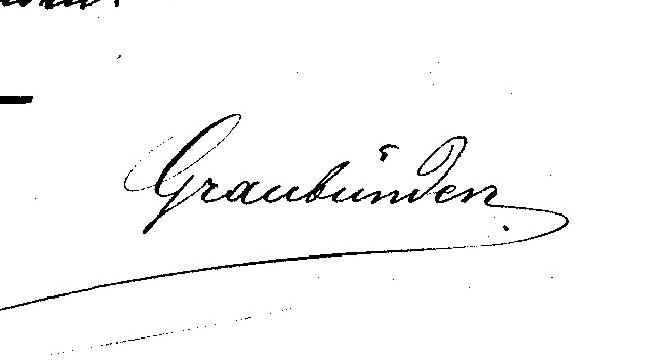 Graubünden.